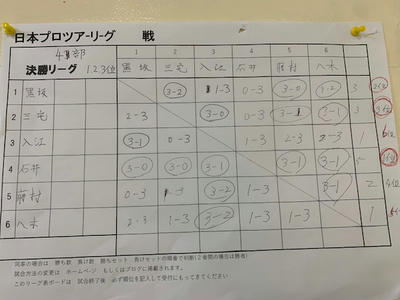 日本プロツアーリーグ 戦
4部
決勝リーグ 1.2.3位 黒坂 三宅 入江 石井 藤村 八木
1 2 3 4 5 6
1 黒坂 3-2 1-3 0-3 3-0 3 3位
2 三宅 2-3 3-0 0-3 3-1 3
3 入江 3-1 0-3 1-3 2-3 2-3 1 6位
4 石井 3-0 3-0 3-1 3-1 3-1 5
5 藤村 0-3 1-3 3-2 1-3 3-1 2 4位
6 八木 2-3 1-3 3-2 1-3 1-3 1
同率の場合は 勝ち数 負け数 勝ちセット 負けセットの順番で判断(2者間の場合は勝者)
試合方法の変更は ホームページ もしくはブログに掲載されます。
このリーグ表ボードは 試合終了後 必ず順位を記入して受付にもってきてください